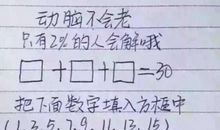 动脑不会老
只有2%的人会解哦
□+□+□=30
把下面数字填入方框中
(1、3、5、7、9、11、13、15)